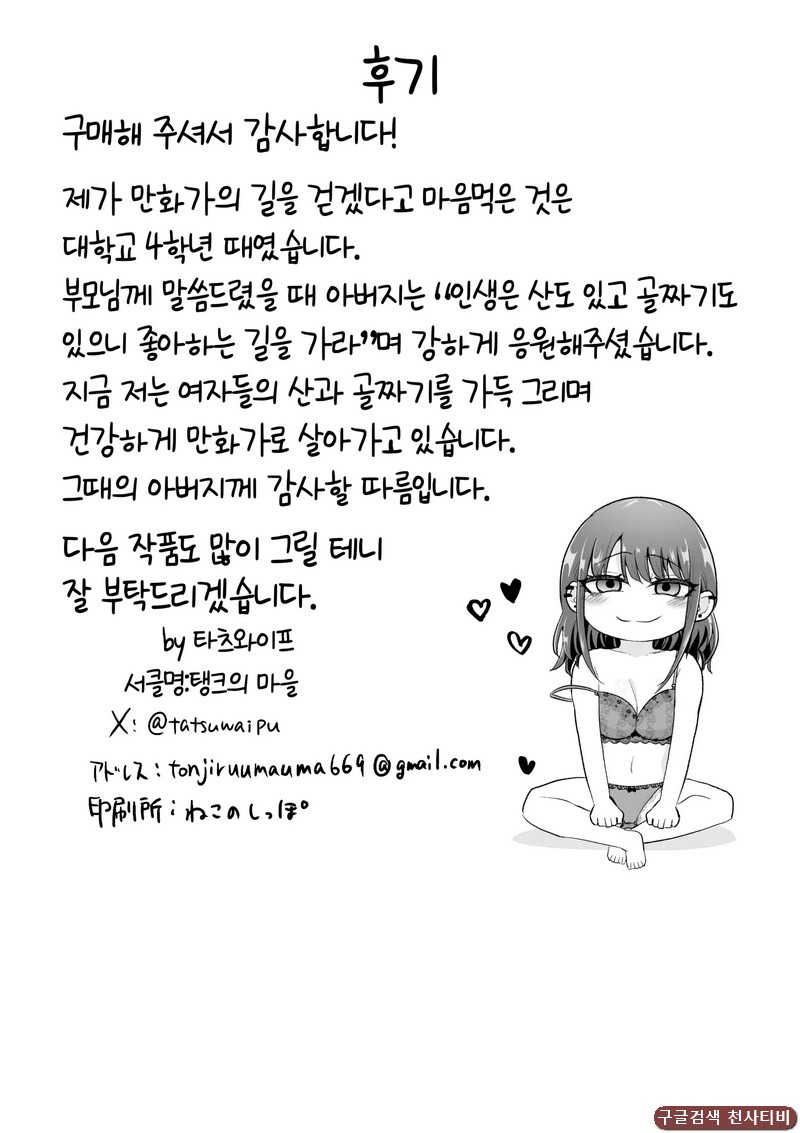 후기
구매해 주셔서 감사합니다!
제가 만화가의 길을 걷겠다고 마음먹은 것은
대학교 4학년 때였습니다.
부모님께 말씀드렸을 때 아버지는 “인생은 산도 있고 골짜기도
있으니 좋아하는 길을 가라”며 강하게 응원해주셨습니다.
지금 저는 여자들의 산과 골짜기를 가득 그리며
건강하게 만화가로 살아가고 있습니다.
그때의 아버지께 감사할 따름입니다.
다음 작품도 많이 그릴 테니
잘 부탁드리겠습니다.
by 타츠와이프
서클명:탱크의 마을
X: @tatsuwaipu
アドレス: tonjiruumauma669@gmail.com
印刷所: ねこのしっぽ°
구글검색 천사티비